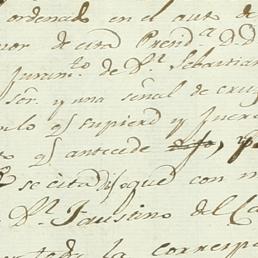 ordenado en el auto de
nor de cita Prend.ª D.D
Juram.to de D.n Sebastian
Señ. y una señal de cruz
q.e supiera y fuere
q.e antecede
se cita dijo que con m
D.n Faustino del Ca
toda la correspo